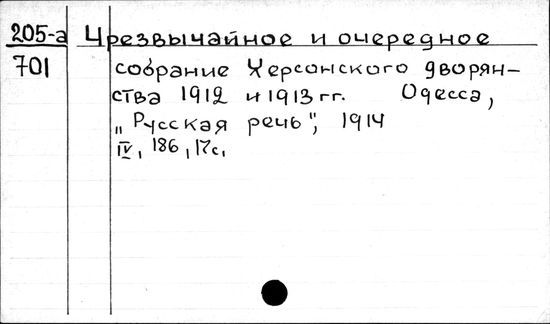 205-а Чрезвычайное и очередное
701 собрание Херсонского дворян-
ства 1912 и 1913 гг. Одесса,
„Русская речь", 1914
IV, 186, 17с,